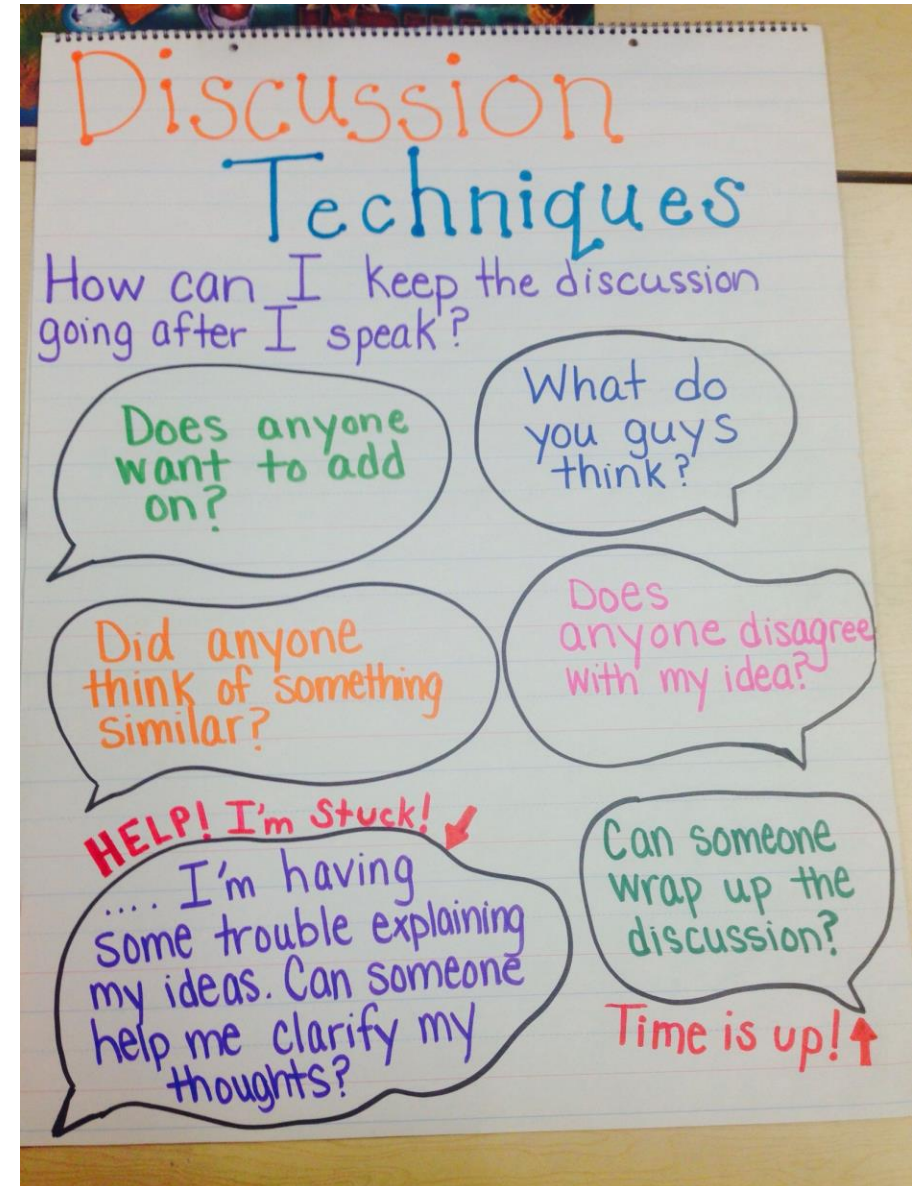 Discussion
Techniques
How can I keep the discussion
going after I speak?
Does anyone
want to add
on?
What do
you guys
think?
Did anyone
think of something
similar?
Does
anyone disagree
with my idea?
HELP! I'm Stuck!
.... I'm having
some trouble explaining
my ideas. Can someone
help me clarify my
thoughts?
Can someone
wrap up the
discussion?
Time is up!